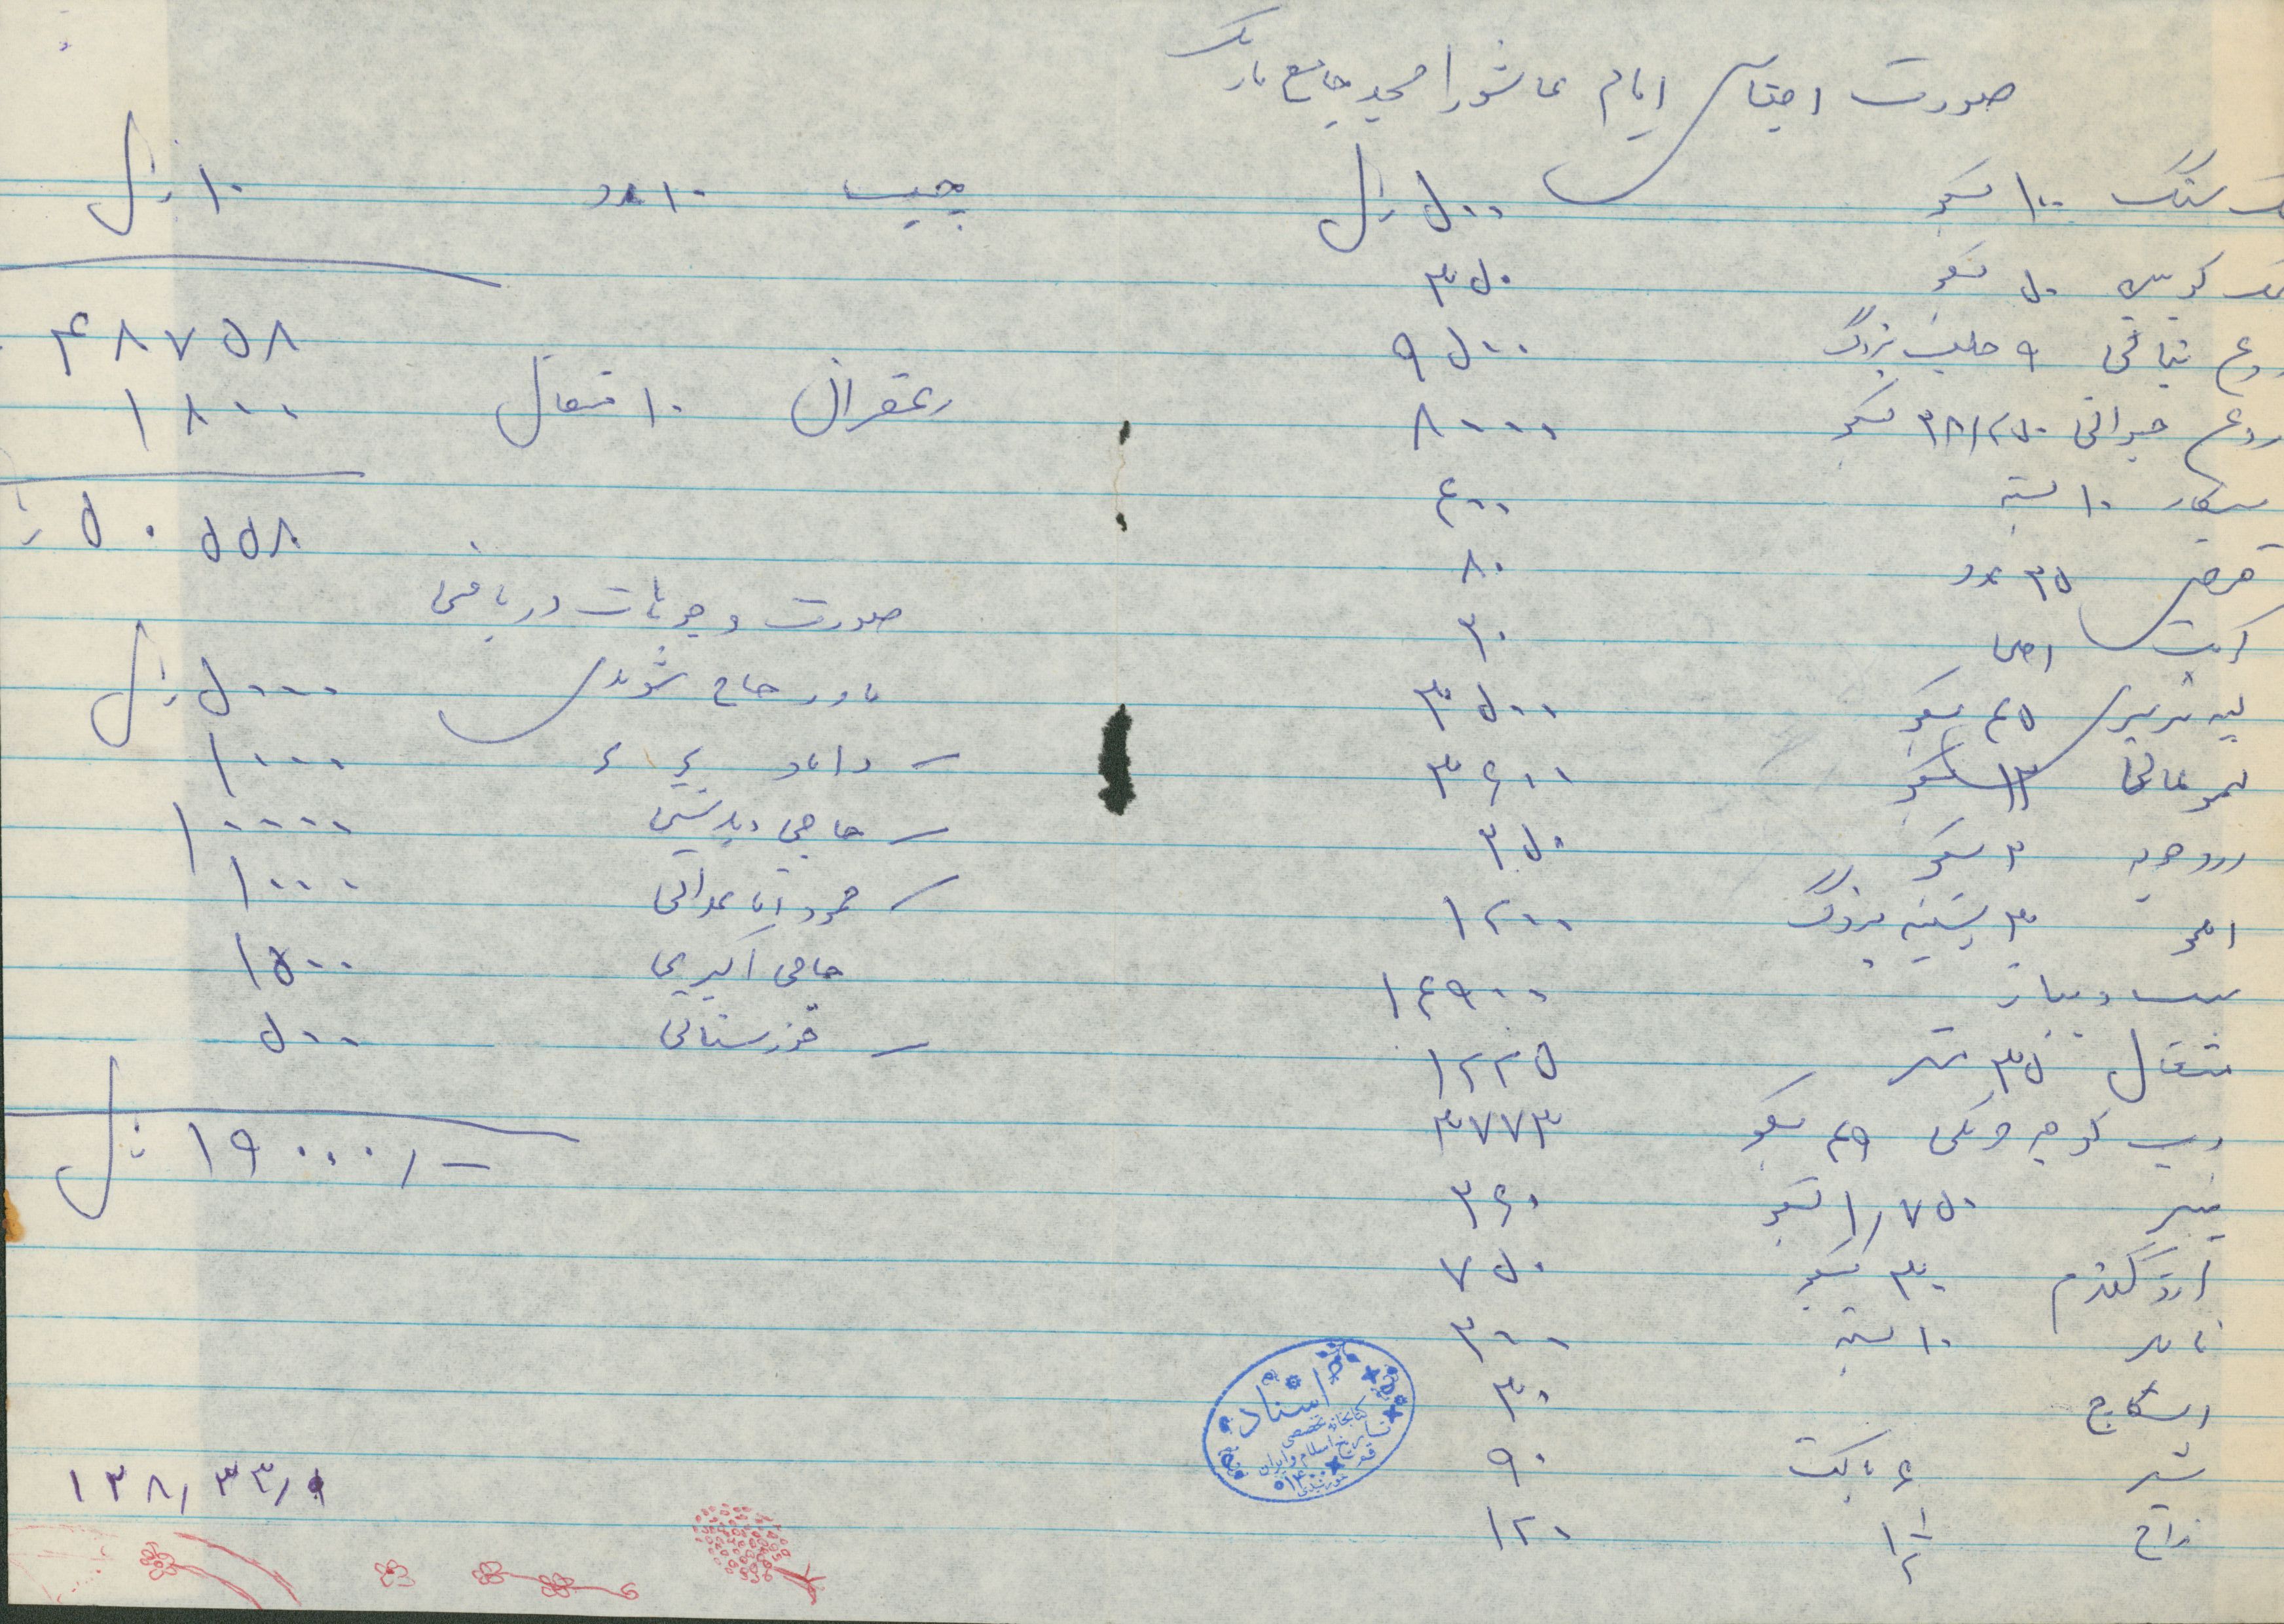 صورت اجناس ایام عاشورا مسجد جامع نارمک
نمک سنگ ۱۰۰ کیلو ۵۰۰ ریال
نمک کوبیده ۵۰ کیلو ۳۵۰
روغن نباتی ۹ حلب بزرگ ۹۵۰۰
روغن حیوانی ۳۸/۲۵۰ کیلو ۸۰۰۰
سیگار ۱۰ بسته ۴۰۰
قرص ۳۵ عدد ۸۰
کبریت ۳۰
لپه تبریزی ۴۵ کیلو ۳۵۰۰
لیمو عمانی ۱۳ کیلو ۳۶۰۰
زردچوبه ۲ کیلو ۳۵۰
آبلیمو ۳ شیشه بزرگ ۱۲۰۰
سیب و پیاز ۱۴۹۰۰
متقال ۳۵ متر ۱۲۲۵
رب گوجه فرنگی ۴۹ کیلو ۳۷۷۳
پنیر ۱/۷۵۰ کیلو ۲۶۰
آرد گندم ۳۰ کیلو ۷۵۰
تاید ۱۰ بسته ۳۰۰
اسکاچ ۳۰
شیر ۶ پاکت ۹۰
زاج ۱ ۱/۲ ۱۲۰
چیپ ۱۰ عدد ۱۰ ریال
۴۸۷۵۸
زعفران ۱۰ مثقال ۱۸۰۰
۵۰۵۵۸ ر
صورت وجوهات دریافتی
مادر حاج شوندی ۵۰۰۰ ریال
داماد ۱۰۰۰
حاجی ۱۰۰۰۰
محمود آقا ۱۰۰۰
حاجی اکبری ۱۵۰۰
خوزستانی ۵۰۰
۱۹۰۰۰/- ریال
اسناد
کتابخانه تخصصی
تاریخ اسلام و ایران
قم
۱۳۸/۳۳/۱